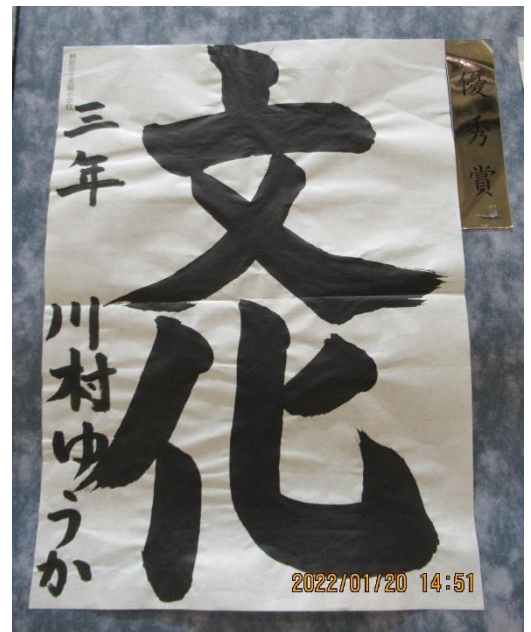 優秀賞
文化
三年
川村ゆうか
2022/01/20 14:51